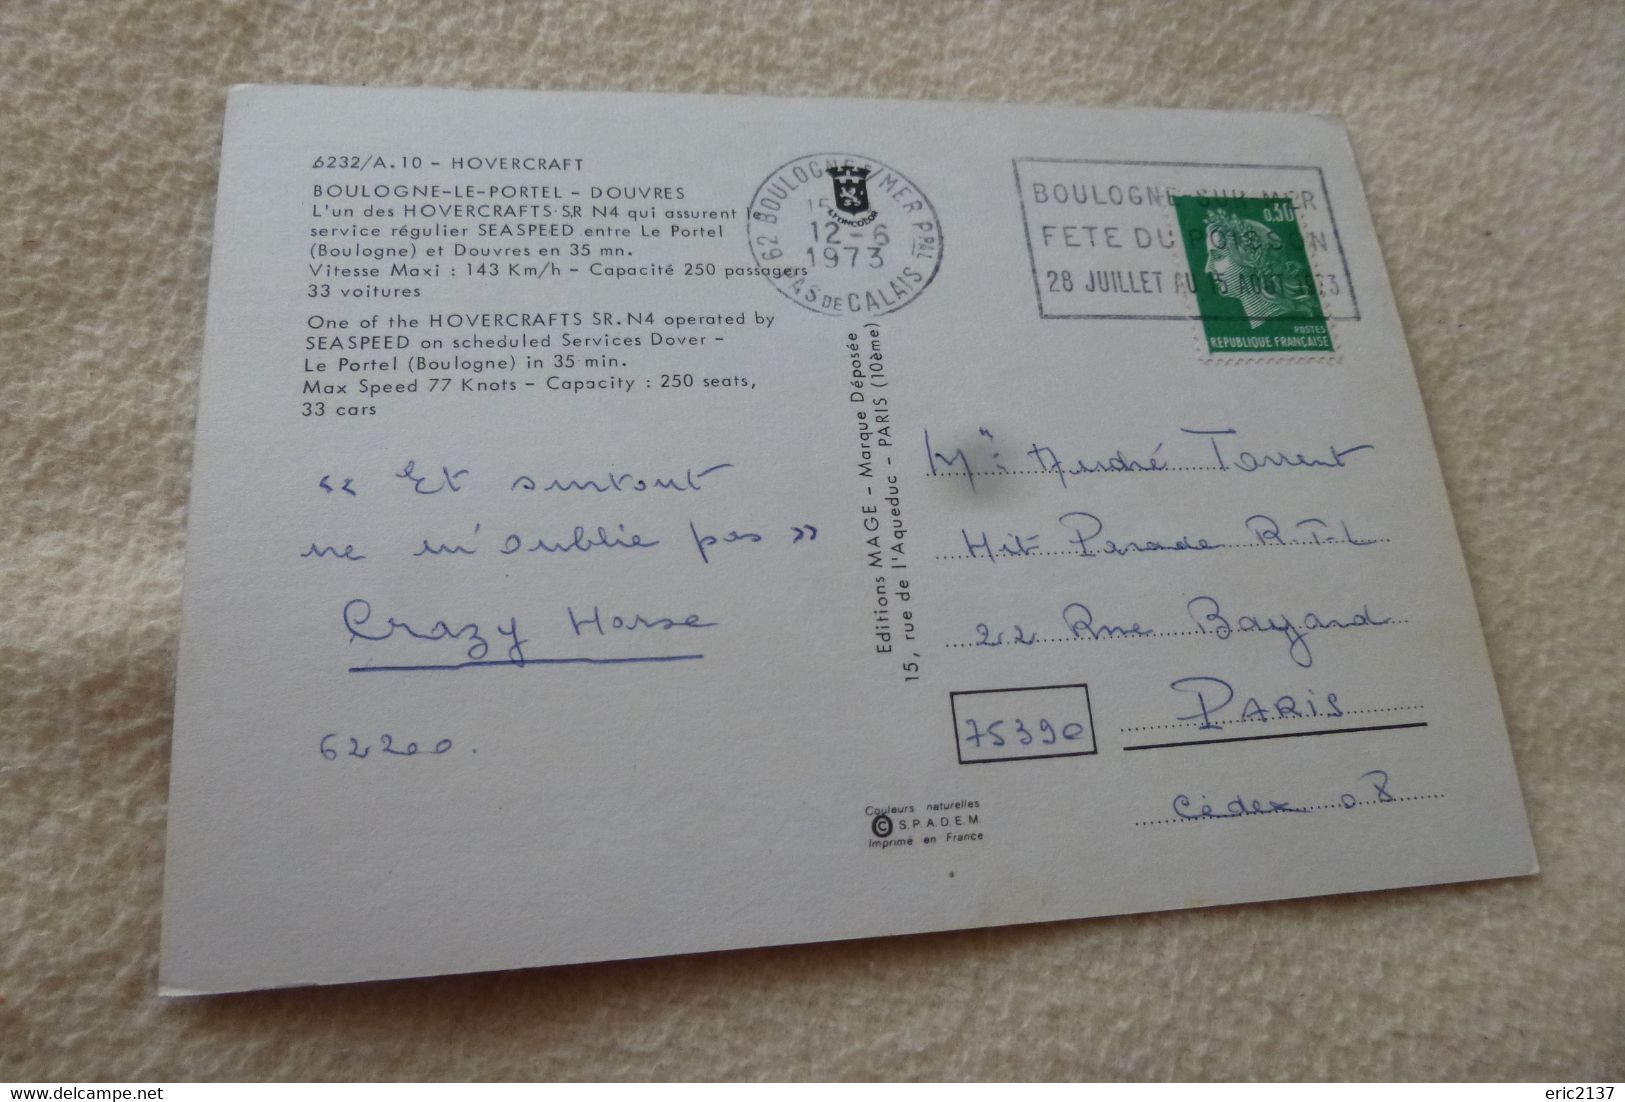 6232/A.10 - HOVERCRAFT
BOULOGNE-LE-PORTEL - DOUVRES
L'un des HOVERCRAFTS S.R N4 qui assurent l
service régulier SEASPEED entre Le Portel
(Boulogne) et Douvres en 35 mn.
Vitesse Maxi : 143 Km/h - Capacité 250 passagers
33 voitures
One of the HOVERCRAFTS SR. N4 operated by
SEASPEED on scheduled Services Dover -
Le Portel (Boulogne) in 35 min.
Max Speed 77 Knots - Capacity : 250 seats,
33 cars
« Et surtout
ne m'oublie pas »
Crazy Horse
62200.
62 BOULOGNE S/MER PPAL
PAS DE CALAIS
12-6
1973
LYONCOLOR
BOULOGNE-SUR-MER
FETE DU POISSON
28 JUILLET AU 15 AOUT 1973
0,30
POSTES
REPUBLIQUE FRANÇAISE
Editions MAGE - Marque Déposée
15, rue de l'Aqueduc - PARIS (10ème)
Mr André Torrent
Hit Parade R.T.L
22 Rue Bayard
75390
PARIS
Cédex 08
Couleurs naturelles
© S.P.A.D.E.M.
Imprimé en France
eric2137